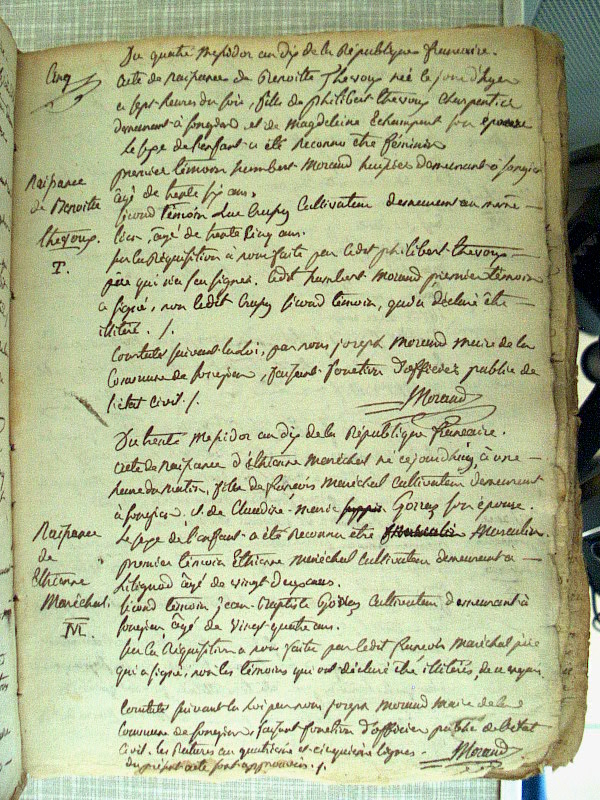 Cinq
Du quatre Messidor an dix de la République francaire.
Acte de Naissance de Benoitte Thevoux née le jour d'hyer
a sept heures du soir, fille de philibert thevoux charpentier
demeurant à songieu et de Magdeleine Echampent son epouse
Le sexe de l'enfant a été reconnu être féminin
premier témoin humbert Morand huissier demeurant à songieu
âgé de trente six ans.
second témoin Luc Crussy Cultivateur demeurant au même
lieu, âgé de trente Cinq ans.
sur la Réquisition à nous faite par ledit philibert thevoux
père qui n'a su signer. ledit humbert Morand premier témoin
a signé, non ledit Crussy second témoin, qui a déclaré être
illitéré ./.
Constaté suivant la loi, par nous joseph Morand maire de la
Commune de songieu, faisant fonction d'officier public de
l'état civil ./.
Morand
Naissance
de Benoitte
thevoux.
I.
Du trente Messidor an dix de la République francaire.
Acte de Naissance d'Ethienne Maréchal né cejourdhuy, à une
heure du matin, fils de françois Maréchal cultivateur demeurant
à songieu et de Claudine marie Goirez son épouse.
Le sexe de l'enfant a été reconnu être Masculin.
premier témoin Ethienne Maréchal Cultivateur demeurant a
hilignod âgé de vingt deux ans.
second témoin jean-baptiste Cultivateur demeurant à
songieu âgé de vingt quatre ans.
sur la Réquisition a nous faite par ledit francois Maréchal père
qui a signé, non les témoins qui ont déclaré être illitérés, de ce enquis
Constaté suivant la loi par nous joseph Morand maire de la
Commune de songieu, faisant fonction d'officier public de l'état
Civil. les Ratures au quatrieme et cinquieme lignes.
du présent acte sont approuvées ./.
Morand
Naissance
de
Ethienne
Maréchal.
M.